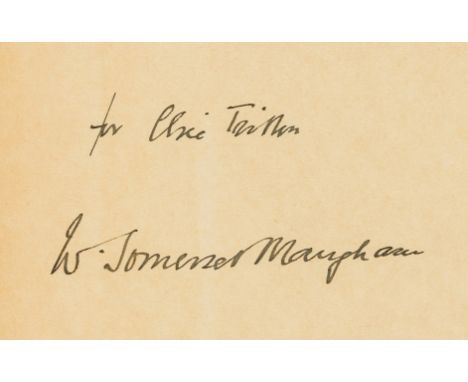 for Elsie Tritton
W. Somerset Maugham